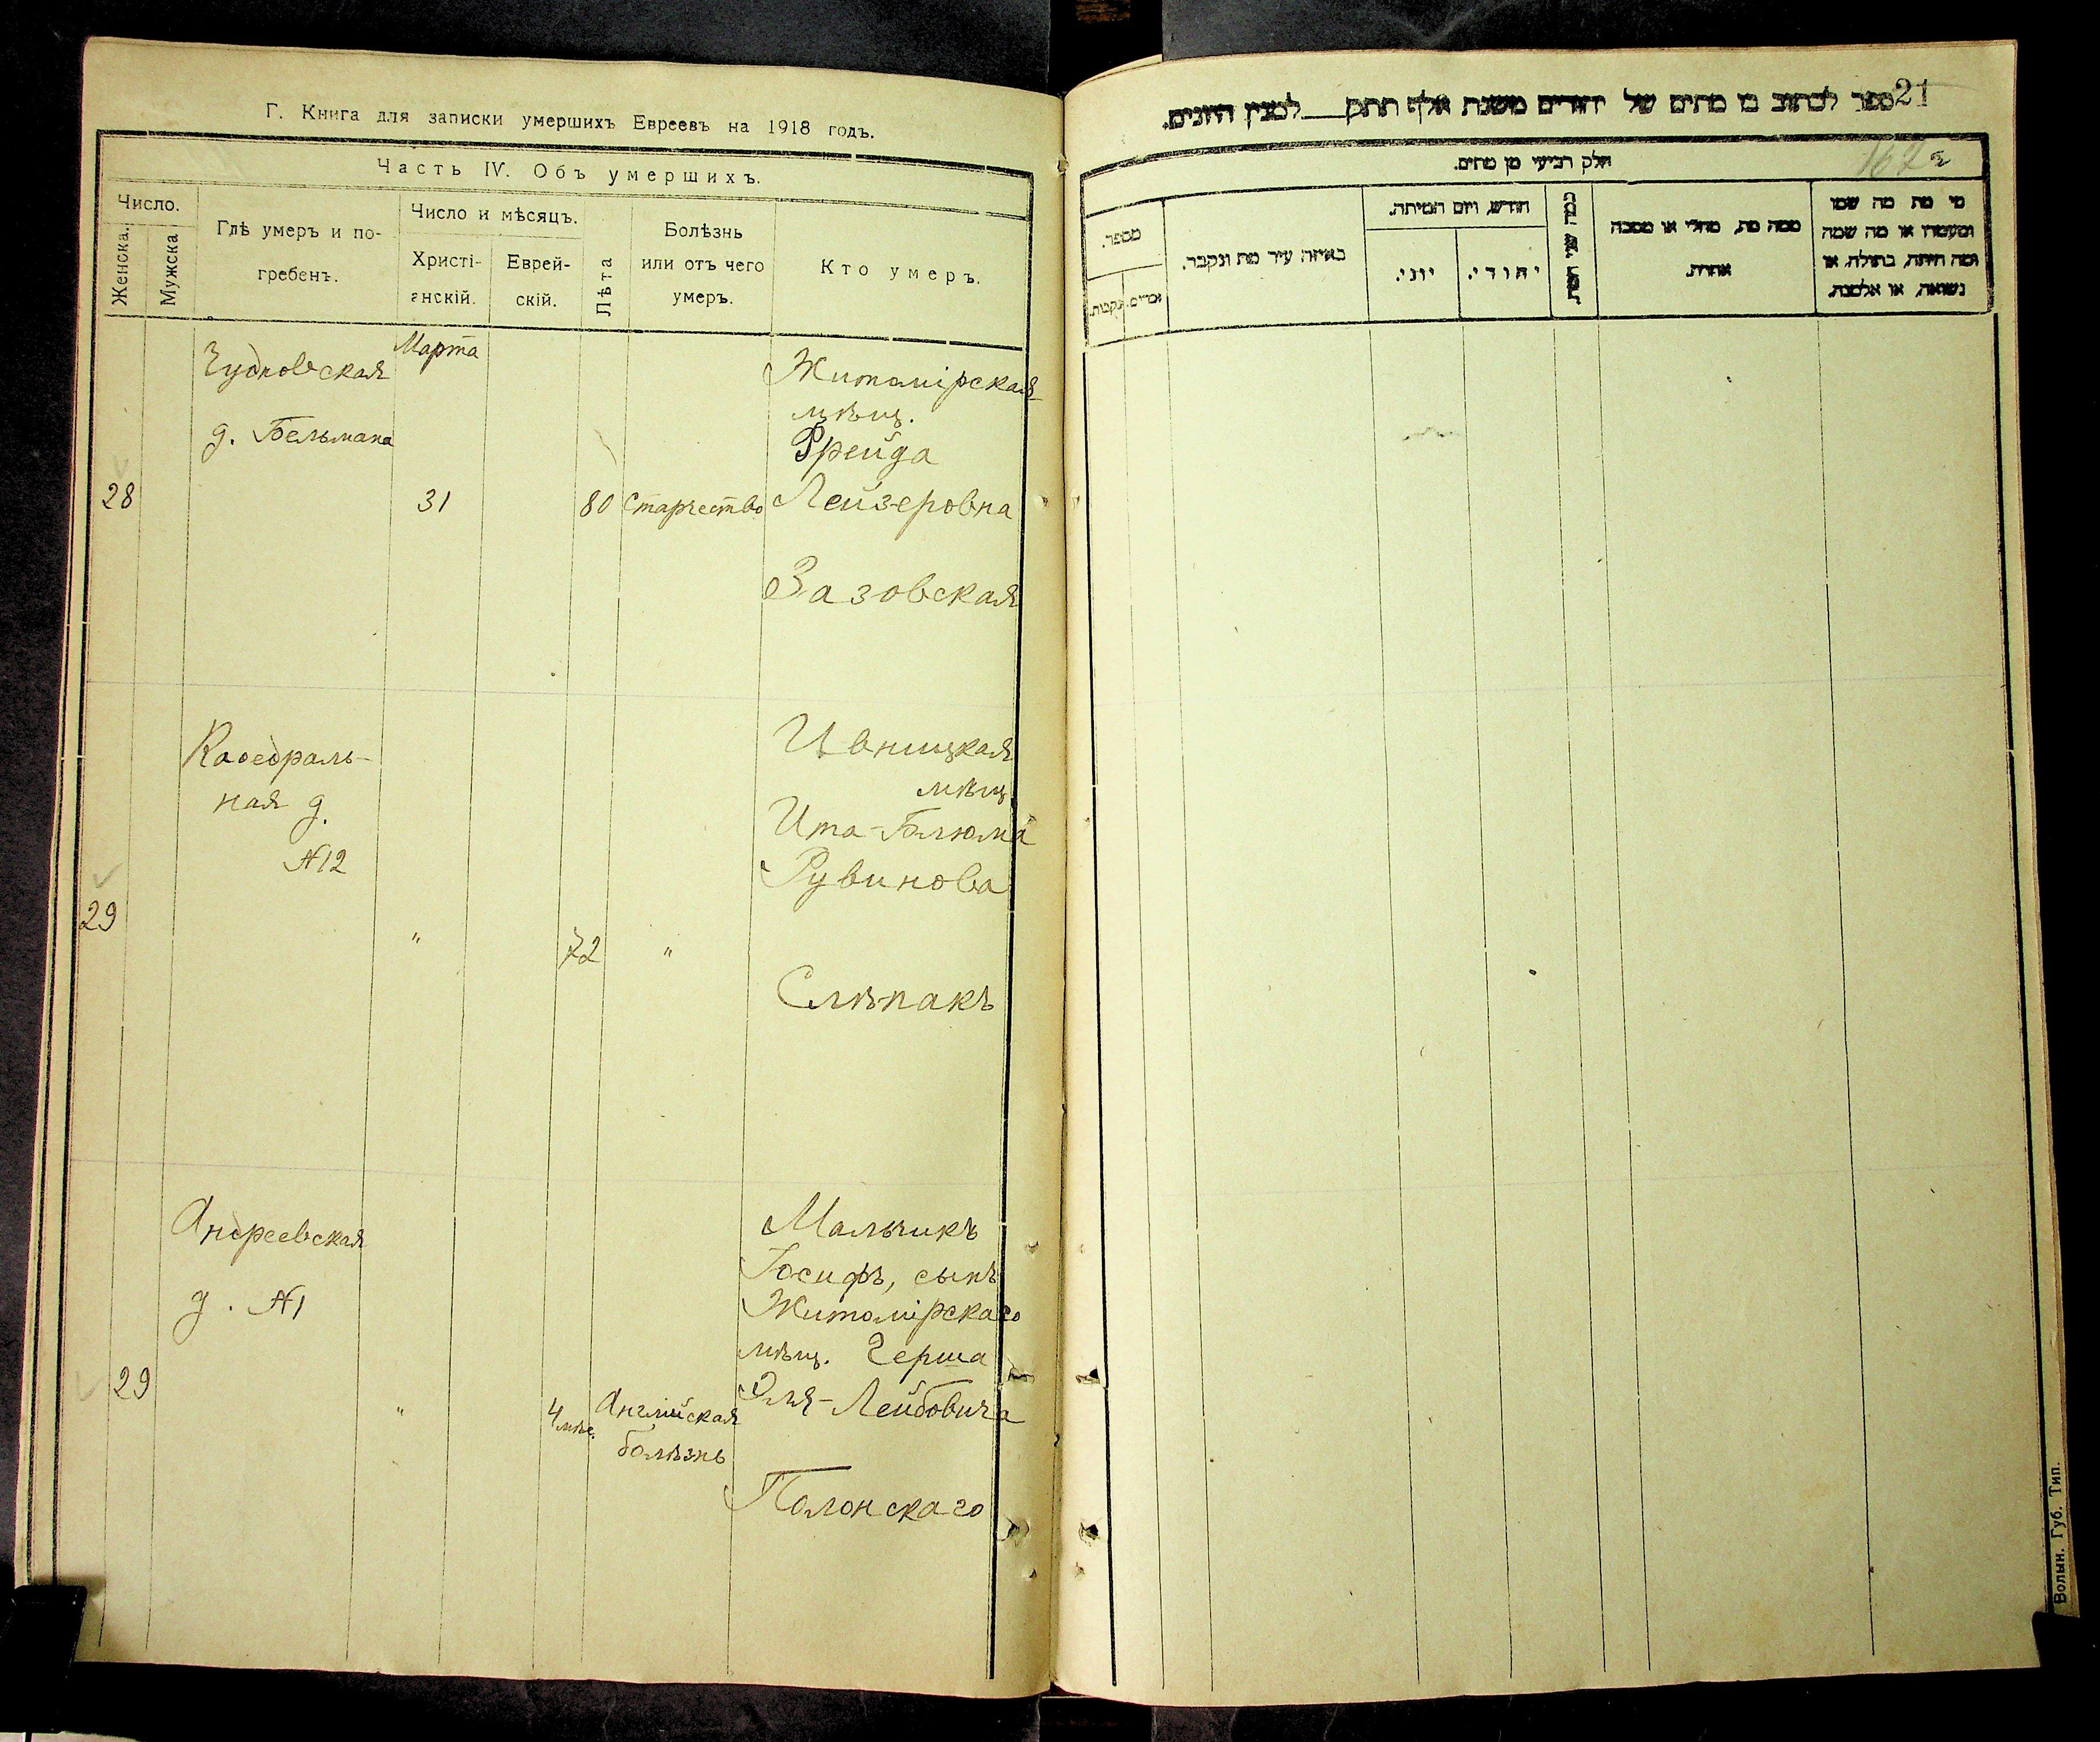 Г. Книга для записки умершихъ Евреевъ на 1918 годъ.
Часть IV. Объ умершихъ.
Число.
Женска.
Мужска
Гдѣ умеръ и по-
гребенъ.
Число и мѣсяцъ.
Христі-
анскій.
Еврей-
скій.
Лѣта
Болѣзнь
или отъ чего
умеръ.
Кто умеръ.
28
Чудновская
д. Бельмана
Марта
31
80
Старчество
Житомірская
мѣщ.
Фрейда
Лейзеровна
Зазовская
29
Каѳедраль-
ная д.
№12
"
72
"
Ивницкая
мѣщ.
Ита-Блюма
Рувинова
Слѣпакъ
29
Андреевская
д. №1
"
4 мѣс.
Англійская
болѣзнь
Мальчикъ
Іосифъ, сынъ
Житомірскаго
мѣщ. Герша
Эля-Лейбовича
Полонскаго
21
ספר לכתוב בו מתים של יהודים משנת אלף תתק___למנין היונים.
חלק רביעי מן מתים.
162
מספר.
זכרים.
נקבות.
באיזה עיר מת ונקבר.
חודש, ויום המיתה.
יוני.
יהודי.
כמה שני המת.
ממה מת, מחלי או מסבה
אחרת.
מי מת מה שמו
ומעמדו או מה שמה
ומה היתה, בתולה, או
נשואה, או אלמנה.
Волын. Губ. Тип.